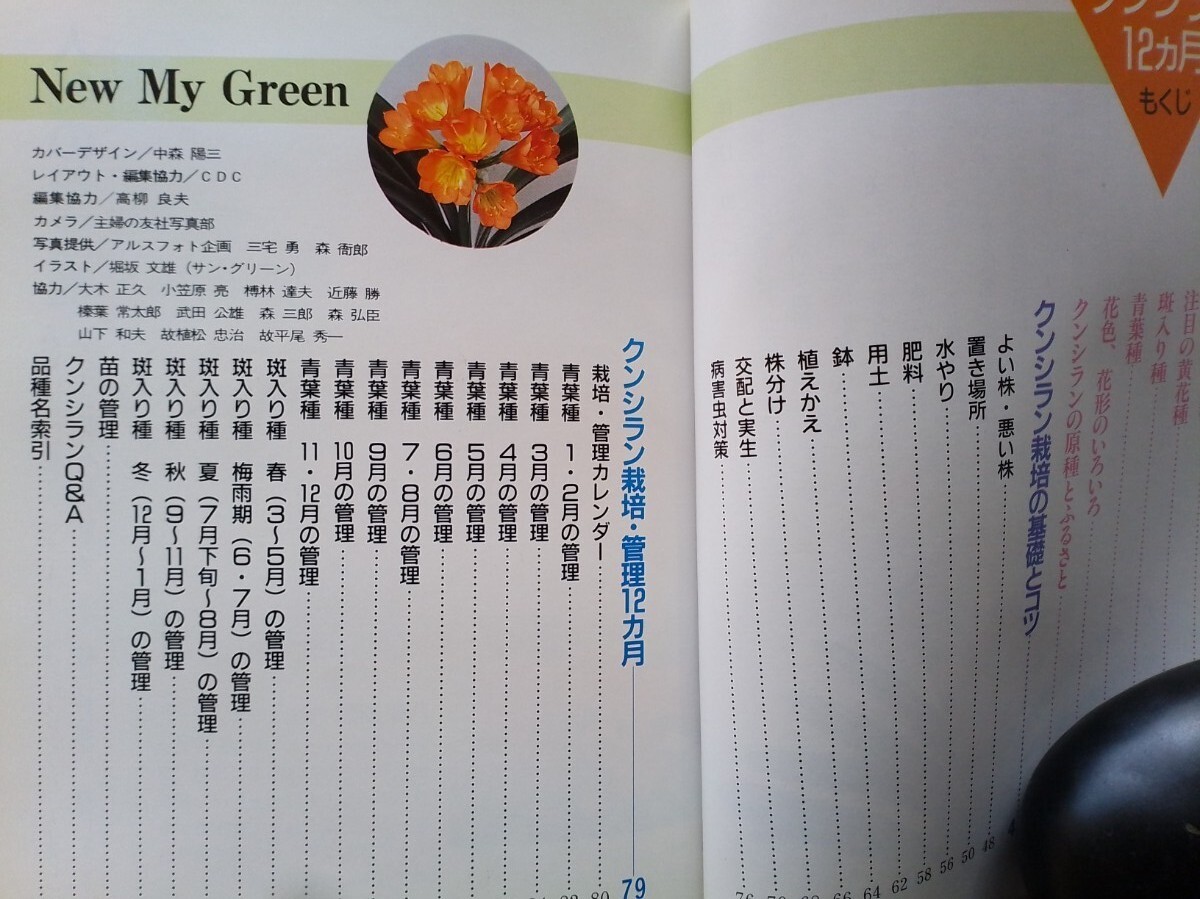 クンシラン
12カ月
もくじ
注目の黄花種
斑入り種
青葉種
花色、花形のいろいろ
クンシランの原種とふるさと
クンシラン栽培の基礎とコツ
よい株・悪い株 48
置き場所 50
水やり 56
肥料 58
用土 62
鉢 64
植えかえ 66
株分け
交配と実生
病害虫対策 76
クンシラン栽培・管理12カ月 79
栽培・管理カレンダー 80
青葉種 1・2月の管理
青葉種 3月の管理
青葉種 4月の管理
青葉種 5月の管理
青葉種 6月の管理
青葉種 7・8月の管理
青葉種 9月の管理
青葉種 10月の管理
青葉種 11・12月の管理
斑入り種 春（3〜5月）の管理
斑入り種 梅雨期（6・7月）の管理
斑入り種 夏（7月下旬〜8月）の管理
斑入り種 秋（9〜11月）の管理
斑入り種 冬（12月〜1月）の管理
苗の管理
クンシランQ&A
品種名索引
New My Green
カバーデザイン／中森 陽三
レイアウト・編集協力／CDC
編集協力／高柳 良夫
カメラ／主婦の友社写真部
写真提供／アルスフォト企画 三宅 勇 森 衙郎
イラスト／堀坂 文雄（サン・グリーン）
協力／大木 正久 小笠原 亮 榑林 達夫 近藤 勝
榛葉 常太郎 武田 公雄 森 三郎 森 弘臣
山下 和夫 故植松 忠治 故平尾 秀一